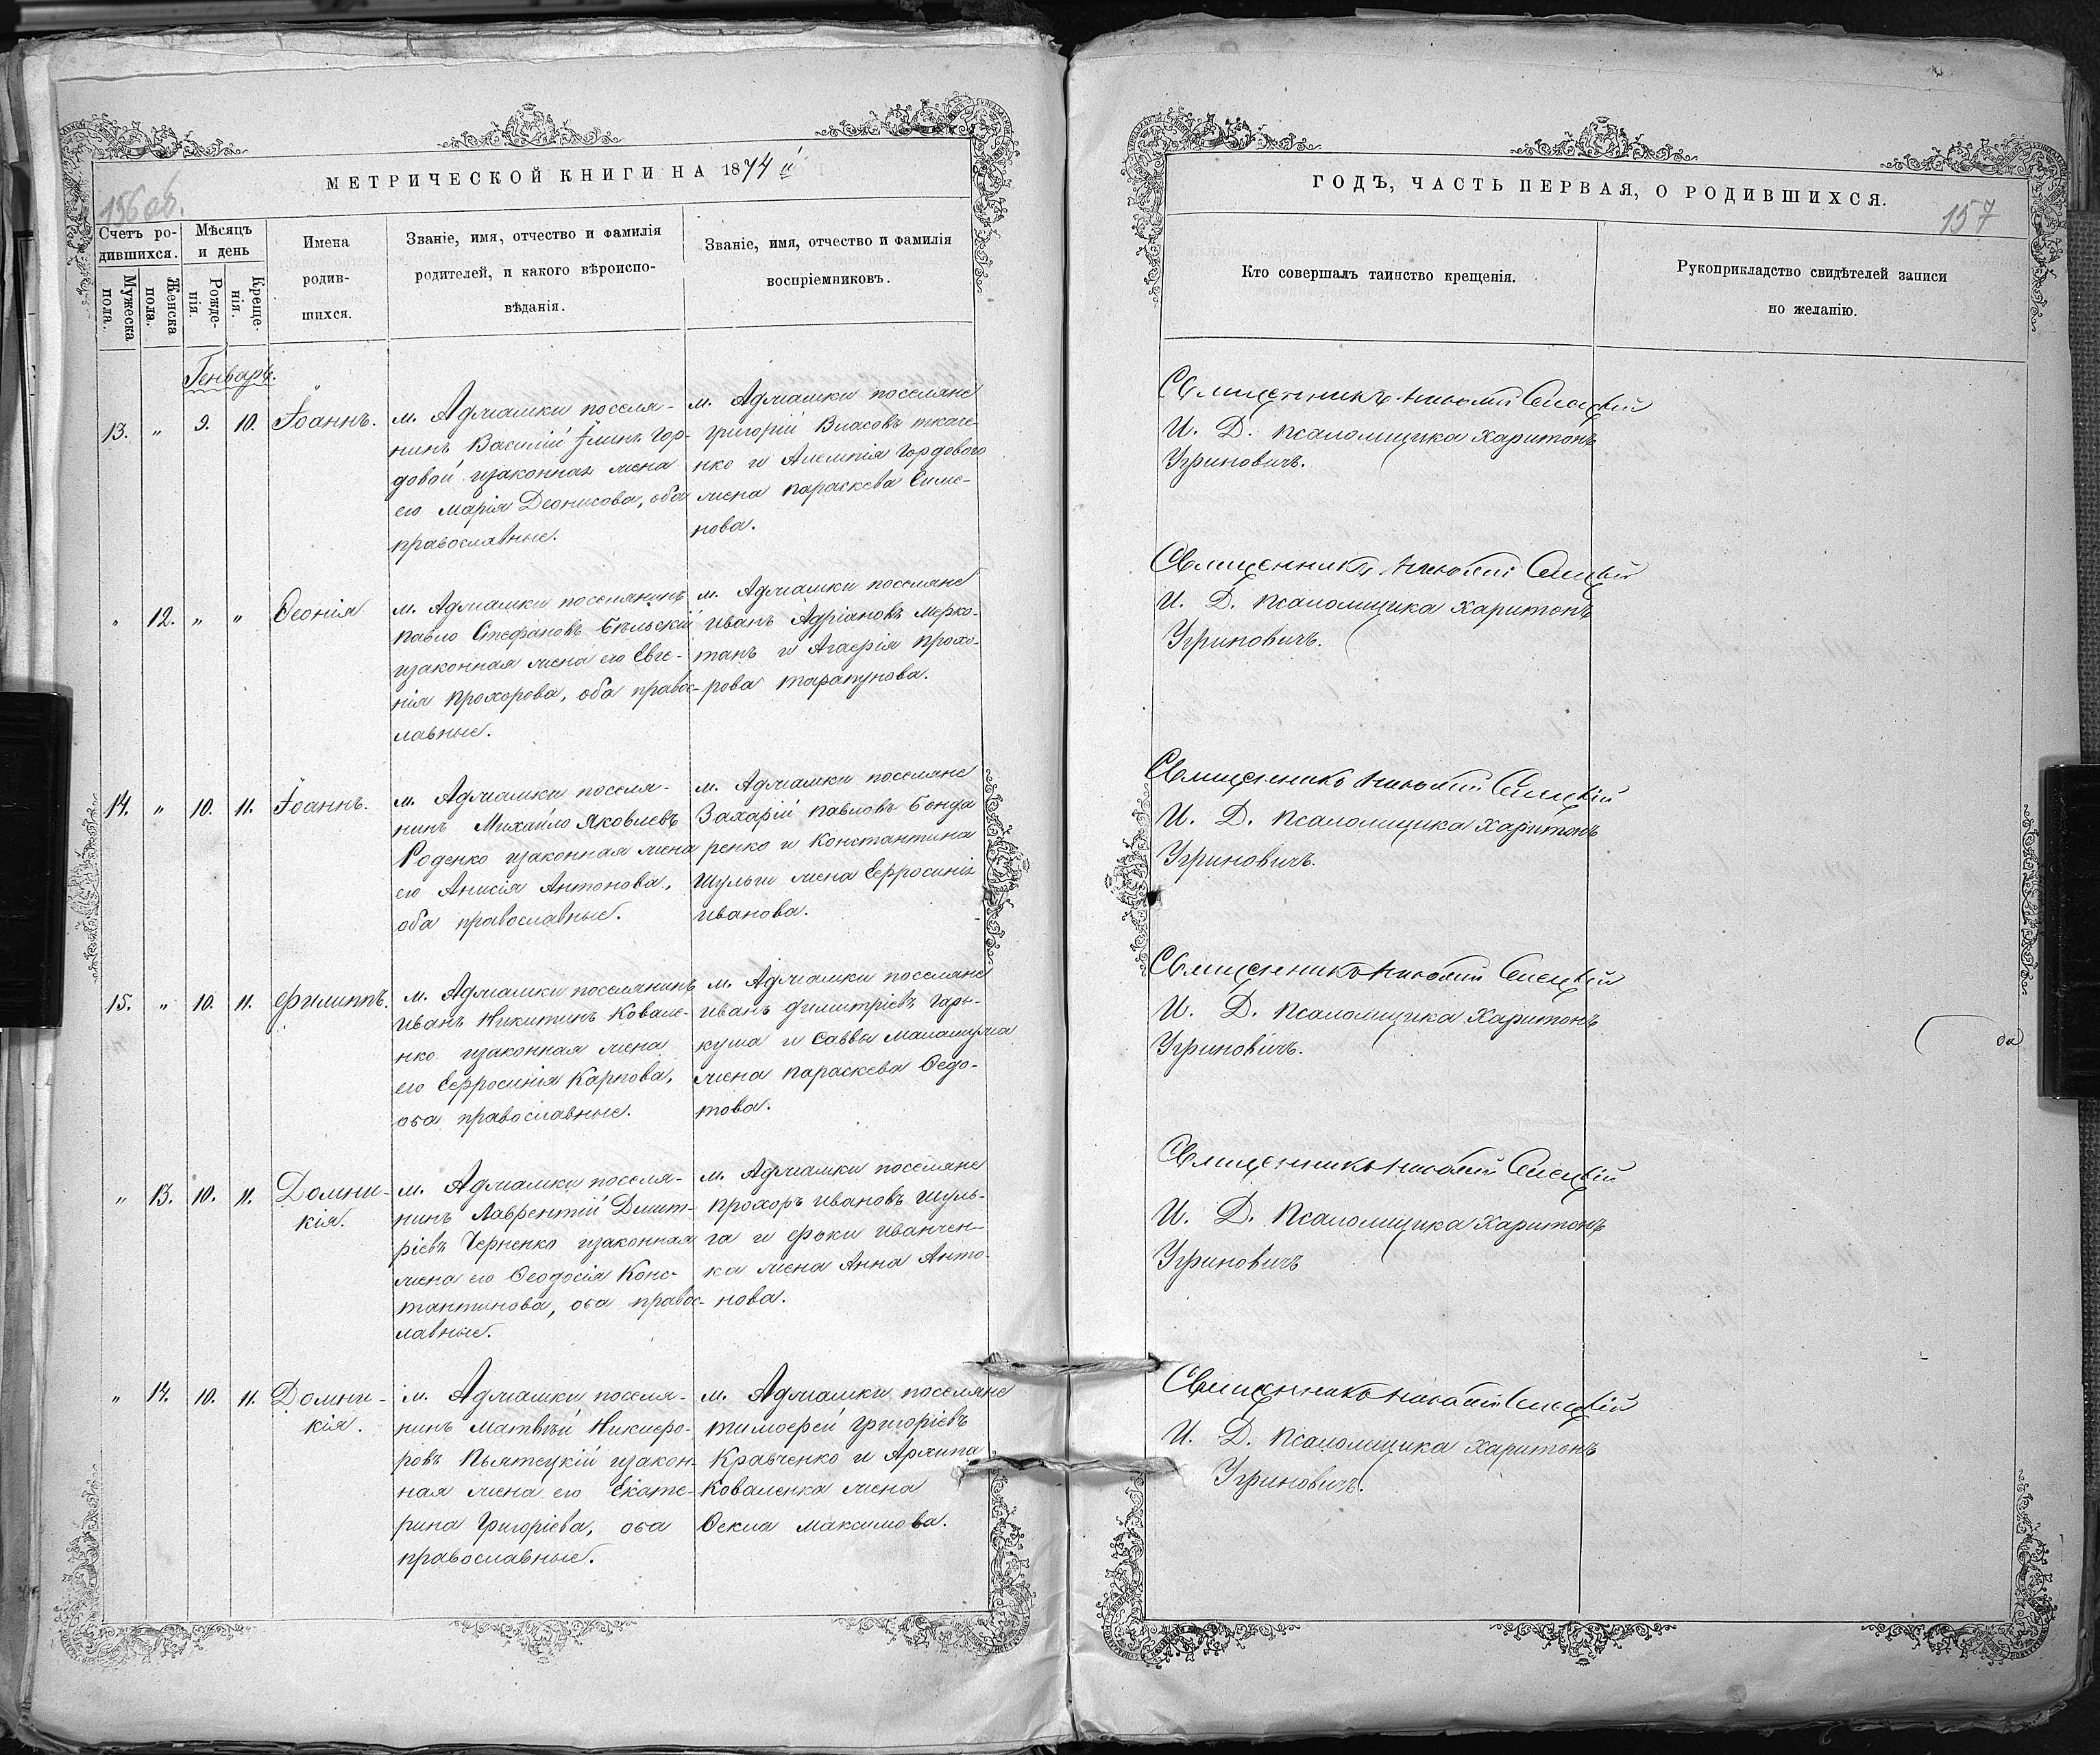 МЕТРИЧЕСКОЙ КНИГИ НА 1874 й
156 об.
Счетъ родившихся.
Мѣсяцъ и день
Мужеска пола.
Женска пола.
Рожденія.
Крещенія.
Имена
родив-
шихся.
Званіе, имя, отчество и фамилія
родителей, и какого вѣроиспо-
вѣданія.
Званіе, имя, отчество и фамилія
воспріемниковъ.
Генварь.
13. „ 9. 10. Іоаннъ.
м. Аджамки поселя-
нинъ Василій Іlинъ Гор-
довой изаконная жена
его Марія Деонисова, оба
православные.
м. Аджамки поселяне
Григорій Власовъ Ткаче-
нко и Гордового
жена Параскева Симе-
нова.
„ 12. „ „ Ѳеонія
м. Аджамки поселянинъ
Павло Стефановъ Бѣльскій
изаконная жена его Евге-
нія Прохорова, оба правос-
лавные.
м. Аджамки поселяне
Иванъ Адріановъ Мерко-
танъ и Агафія Прохо-
рова Тарапунова.
14. „ 10. 11. Іоаннъ.
м. Аджамки поселя-
нинъ Михайло Яковлевъ
Роденко изаконная жена
его Анисія Антонова,
оба православные.
м. Аджамки поселяне
Захарій Павловъ Бонда
ренко и Константина
Шульги жена Евфросинія
Иванова.
15. „ 10. 11. Филиппъ.
м. Аджамки поселянинъ
Иванъ Никитинъ Ковале-
нко изаконная жена
его Евфросинія Карпова,
оба православные.
м. Аджамки поселяне
Иванъ Димитріевъ Гарь-
куша и Саввы Малашума
жена Параскева Ѳедо-
това.
„ 13. 10. 11. Домни-
кія.
м. Аджамки поселя-
нинъ Лаврентій Димит-
ріевъ Черненко изаконная
жена его Ѳеодосія Конс-
тантинова, оба правос-
лавные.
м. Аджамки поселяне
Прохоръ Ивановъ Шуль-
га и Фоки Иванчен-
ка жена Анна Анто-
нова.
„ 14. 10. 11. Домни-
кія.
м. Аджамки поселя-
нинъ Матвѣй Никифо-
ровъ Пьятецкій изакон-
ная жена его Екате-
рина Григоріева, оба
православные.
м. Аджамки поселяне
Тимофей Григоріевъ
Кравченко и Архипа
Коваленка жена
Ѳекла Максимова.
ГОДЪ, ЧАСТЬ ПЕРВАЯ, О РОДИВШИХСЯ.
157
Кто совершалъ таинство крещенія.
Рукоприкладство свидѣтелей записи
по желанію.
Священникъ Николай Селецкій
И. Д. Псаломщика Харитонъ
Угриновичъ.
Священникъ Николай Селецкій
И. Д. Псаломщика Харитонъ
Угриновичъ.
Священникъ Николай Селецкій
И. Д. Псаломщика Харитонъ
Угриновичъ.
Священникъ Николай Селецкій
И. Д. Псаломщика Харитонъ
Угриновичъ.
Священникъ Николай Селецкій
И. Д. Псаломщика Харитонъ
Угриновичъ
Священникъ Николай Селецкій
И. Д. Псаломщика Харитонъ
Угриновичъ.